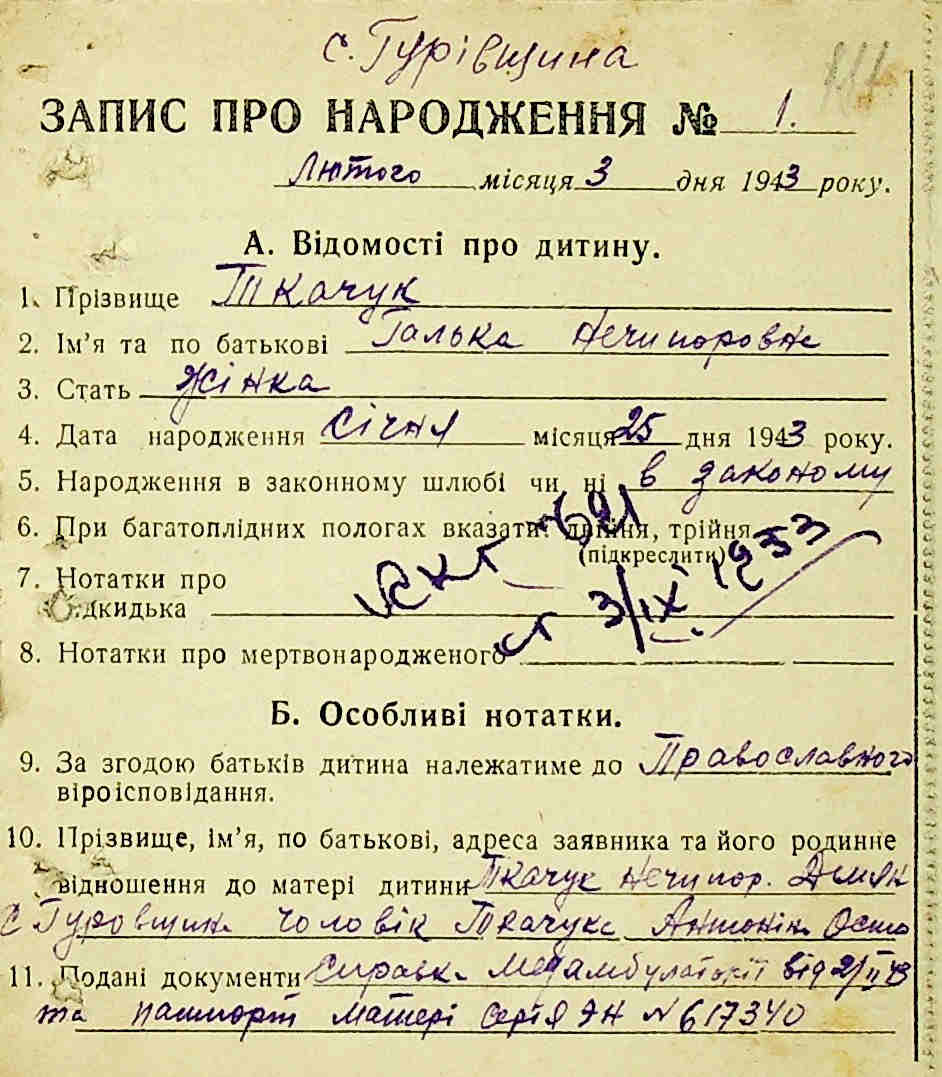 с. Гурівщина
ЗАПИС ПРО НАРОДЖЕННЯ № 1.
Лютого місяця 3 дня 1943 року.
А. Відомості про дитину.
1. Прізвище Ткачук
2. Ім’я та по батькові Галька Нечипоровна
3. Стать Жінка
4. Дата народження Січня місяця 25 дня 1943 року.
5. Народження в законному шлюбі чи ні в закономy
6. При багатоплідних пологах вказати: двійня, трійня
(підкреслити)
7. Нотатки про
підкидька
621
ст 3/IX 1953
8. Нотатки про мертвонародженого
Б. Особливі нотатки.
9. За згодою батьків дитина належатиме до Православного
віроісповідання.
10. Прізвище, ім’я, по батькові, адреса заявника та його родинне
відношення до матері дитини Ткачук Нечипор. Демян
с Гуровщина чоловік Ткачук Антонін Оста
11. Подані документи Справка Медамбулаторії від 2/II 43
та пашпорт матері серія ЭН № 617340